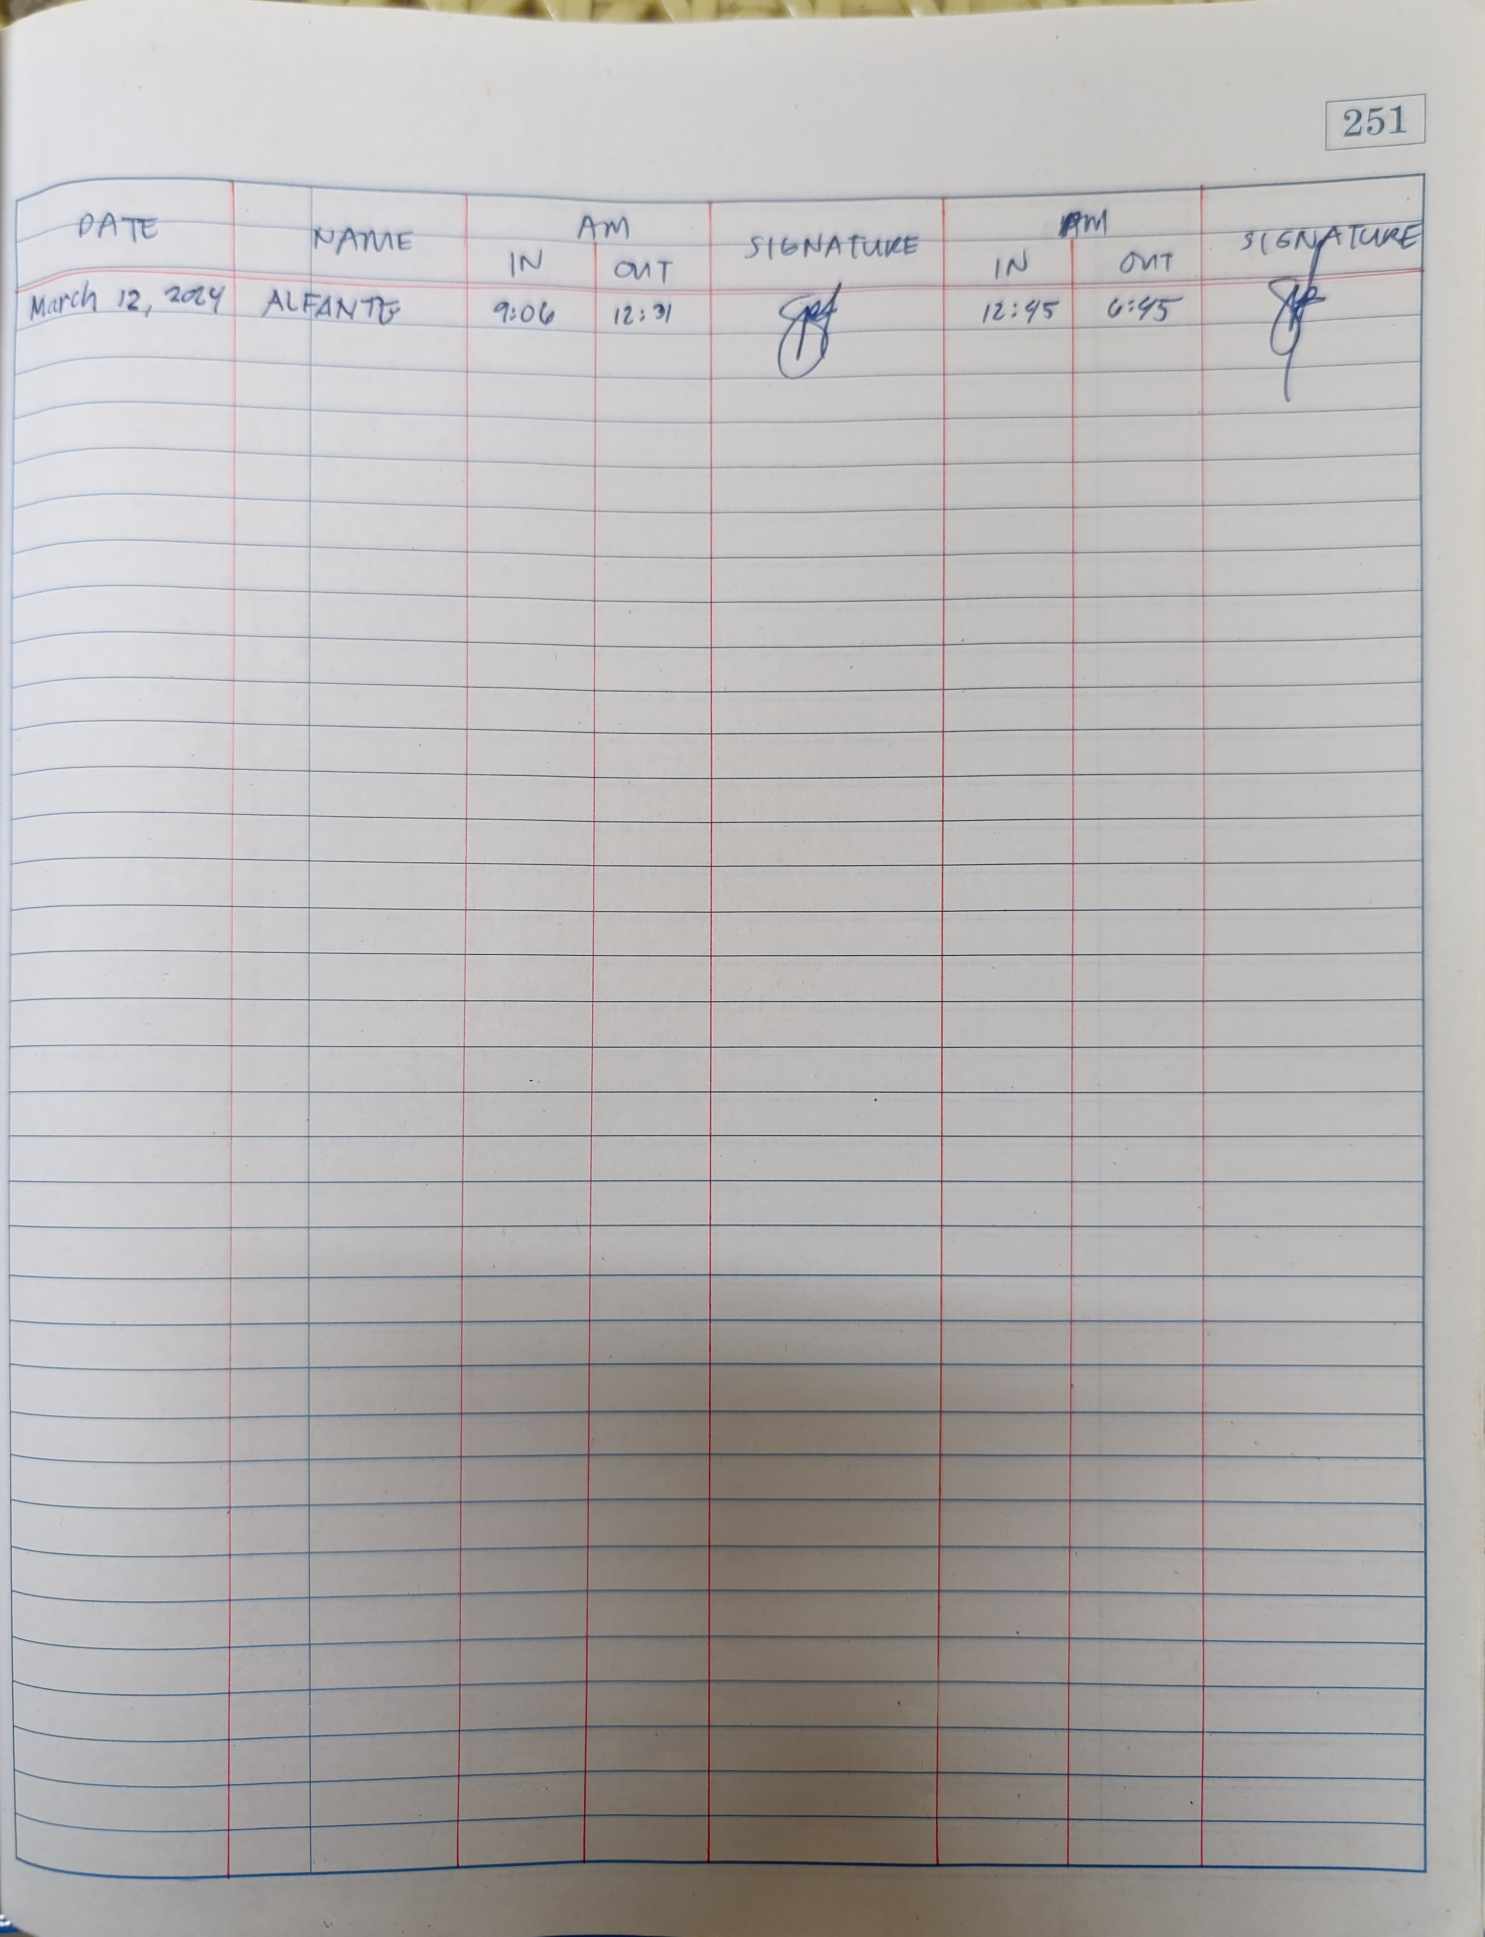 251
DATE NAME AM SIGNATURE AM SIGNATURE
IN OUT IN OUT
March 12, 2024 ALFANTE 9:06 12:31 12:45 6:45